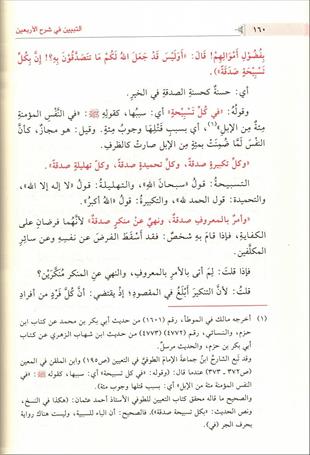 ١٦٠ التبيين في شرح الأربعين
بِفُضُولِ أَمْوَالِهِمْ! قَالَ: «أَوَلَيْسَ قَدْ جَعَلَ اللهُ لَكُمْ مَا تَتَصَدَّقُونَ بِهِ؟! إِنَّ بِكُلِّ
تَسْبِيحَةٍ صَدَقَةً»).
أي: حسنةً كحسنةِ الصدقةِ في الخيرِ.
وقولُهُ: «في كُلِّ تَسْبِيحَةٍ» أي: سببُها، كقولِهِ ﷺ: «في النَّفْسِ المؤمنةِ
مِئةٌ مِنَ الإبلِ»(١)، أي بسببِ قَتْلِها وجوبُ مِئةٍ. وقيل: هو مجازٌ، كأنَّ
النفسَ لمَّا ضُمِنَتْ بمئةٍ من الإبلِ صارتْ كالظرفِ.
«وكلِّ تكبيرةٍ صدقةً، وكلِّ تحميدةٍ صدقةً، وكلِّ تهليلةٍ صدقةً».
التسبيحةُ: قولُ «سبحانَ اللهِ»، والتهليلةُ: قولُ «لا إله إلا الله»،
والتحميدة: قول الحمد لله»، والتكبيرةُ: قولُ «اللهُ أكبرُ».
«وأمرٌ بالمعروفِ صدقةٌ، ونهيٌ عنْ منكرٍ صدقةٌ» لأنَّهما فرضانِ على
الكفايةِ، فإذا قامَ بهِ شخصٌ: فقد أَسْقَطَ الفرضَ عن نفسِهِ وعن سائرِ
المكلَّفين.
فإذا قلتَ: لِمَ أتى بالأمرِ بالمعروفِ، والنهي عنِ المنكرِ مُنَكَّرَيْنِ؟
قلتُ: لأنَّ التنكيرَ أبْلَغُ في المقصودِ؛ إذْ يقتضي: أنَّ كُلَّ فردٍ من أفرادِ
(١) أخرجه مالك في الموطأ، رقم (١٦٠١) من حديث أبي بكر بن محمد عن كتاب ابن
حزم، والنسائي، رقم (٤٧٧٢) (٤٧٧٣) من حديث ابن شهاب الزهري عن كتاب ابن
أبي بكر بن حزم، والحديث مرسلٌ.
وقد تَبِعَ الشارحُ ابنُ جماعةَ الإمامَ الطوفيَّ في التعيين (ص١٩٥) وابن الملقن في المعين
(ص٣٧٢ ـ ٣٧٣) عندما قال: (وقوله: «في كل تسبيحة» أي: سببها، كقوله ﷺ: «في
النفس المؤمنة مئة من الإبل» أي: بسبب قتلها وجوب مئة).
والصحيح ما قاله محقق كتاب التعيين للطوفي الأستاذ أحمد عثمان: (هكذا في النسخ،
ونص الحديث: «بكل تسبيحة صدقة»). فالصحيح: أن الباء للسببية، وليست هناك رواية
بحرف الجر (في).